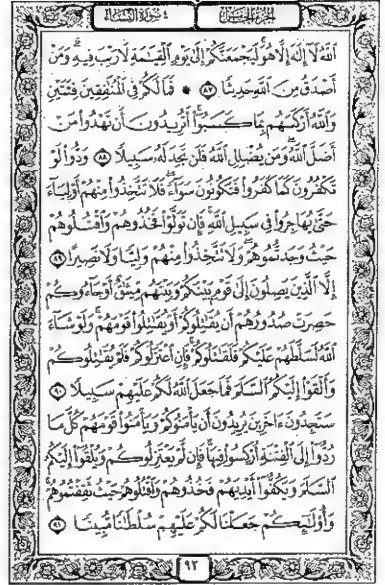 الجزء الخامس
٤ سورة النساء
ٱللَّهُ لَآ إِلَٰهَ إِلَّا هُوَ ۚ لَيَجْمَعَنَّكُمْ إِلَىٰ يَوْمِ ٱلْقِيَٰمَةِ لَا رَيْبَ فِيهِ ۗ وَمَنْ
أَصْدَقُ مِنَ ٱللَّهِ حَدِيثًا ٨٧ ۞ فَمَا لَكُمْ فِى ٱلْمُنَٰفِقِينَ فِئَتَيْنِ
وَٱللَّهُ أَرْكَسَهُم بِمَا كَسَبُوٓا۟ ۚ أَتُرِيدُونَ أَن تَهْدُوا۟ مَنْ
أَضَلَّ ٱللَّهُ ۖ وَمَن يُضْلِلِ ٱللَّهُ فَلَن تَجِدَ لَهُۥ سَبِيلًا ٨٨ وَدُّوا۟ لَوْ
تَكْفُرُونَ كَمَا كَفَرُوا۟ فَتَكُونُونَ سَوَآءً ۖ فَلَا تَتَّخِذُوا۟ مِنْهُمْ أَوْلِيَآءَ
حَتَّىٰ يُهَاجِرُوا۟ فِى سَبِيلِ ٱللَّهِ ۚ فَإِن تَوَلَّوْا۟ فَخُذُوهُمْ وَٱقْتُلُوهُمْ
حَيْثُ وَجَدتُّمُوهُمْ ۖ وَلَا تَتَّخِذُوا۟ مِنْهُمْ وَلِيًّا وَلَا نَصِيرًا ٨٩
إِلَّا ٱلَّذِينَ يَصِلُونَ إِلَىٰ قَوْمٍۭ بَيْنَكُمْ وَبَيْنَهُم مِّيثَٰقٌ أَوْ جَآءُوكُمْ
حَصِرَتْ صُدُورُهُمْ أَن يُقَٰتِلُوكُمْ أَوْ يُقَٰتِلُوا۟ قَوْمَهُمْ ۚ وَلَوْ شَآءَ
ٱللَّهُ لَسَلَّطَهُمْ عَلَيْكُمْ فَلَقَٰتَلُوكُمْ ۚ فَإِنِ ٱعْتَزَلُوكُمْ فَلَمْ يُقَٰتِلُوكُمْ
وَأَلْقَوْا۟ إِلَيْكُمُ ٱلسَّلَمَ فَمَا جَعَلَ ٱللَّهُ لَكُمْ عَلَيْهِمْ سَبِيلًا ٩٠
سَتَجِدُونَ ءَاخَرِينَ يُرِيدُونَ أَن يَأْمَنُوكُمْ وَيَأْمَنُوا۟ قَوْمَهُمْ كُلَّ مَا
رُدُّوٓا۟ إِلَى ٱلْفِتْنَةِ أُرْكِسُوا۟ فِيهَا ۚ فَإِن لَّمْ يَعْتَزِلُوكُمْ وَيُلْقُوٓا۟ إِلَيْكُمُ
ٱلسَّلَمَ وَيَكُفُّوٓا۟ أَيْدِيَهُمْ فَخُذُوهُمْ وَٱقْتُلُوهُمْ حَيْثُ ثَقِفْتُمُوهُمْ ۚ
وَأُو۟لَٰٓئِكُمْ جَعَلْنَا لَكُمْ عَلَيْهِمْ سُلْطَٰنًا مُّبِينًا ٩١
٩٢